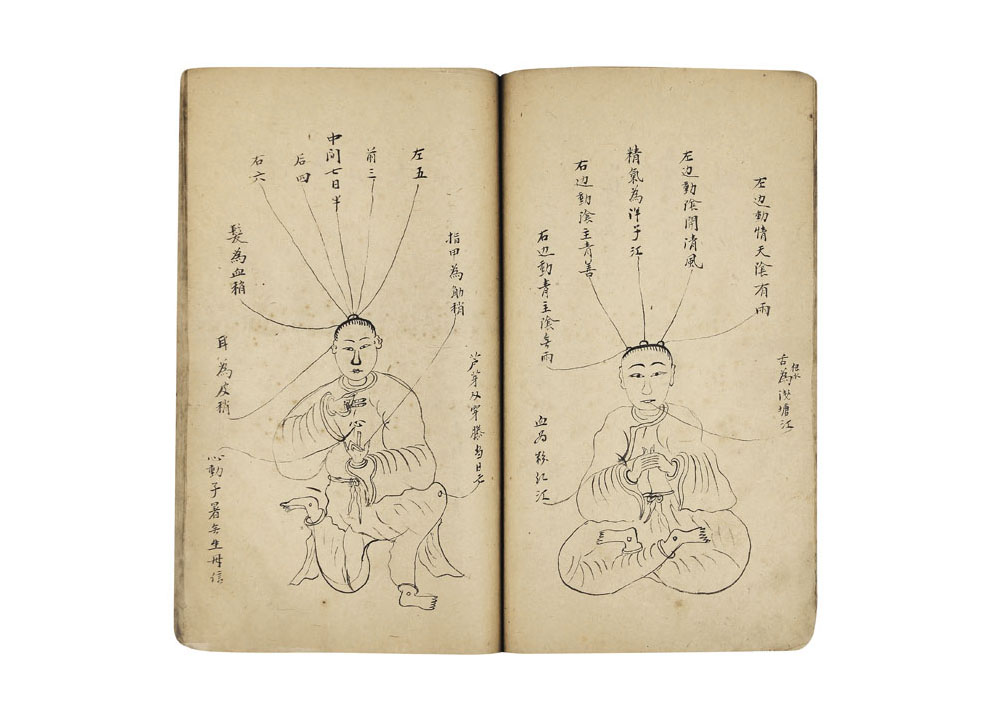 左边動情天陰有雨
左边動陰開清風
精氣為洋子江
右边動陰主青善
右边動青主陰無雨
古為塘江
血為江
左五
前三
中间七日半
后四
右六
指甲為觔稍
髮為血稍
耳為皮稍
芦芽穿膝為日
心
心動子署生母信